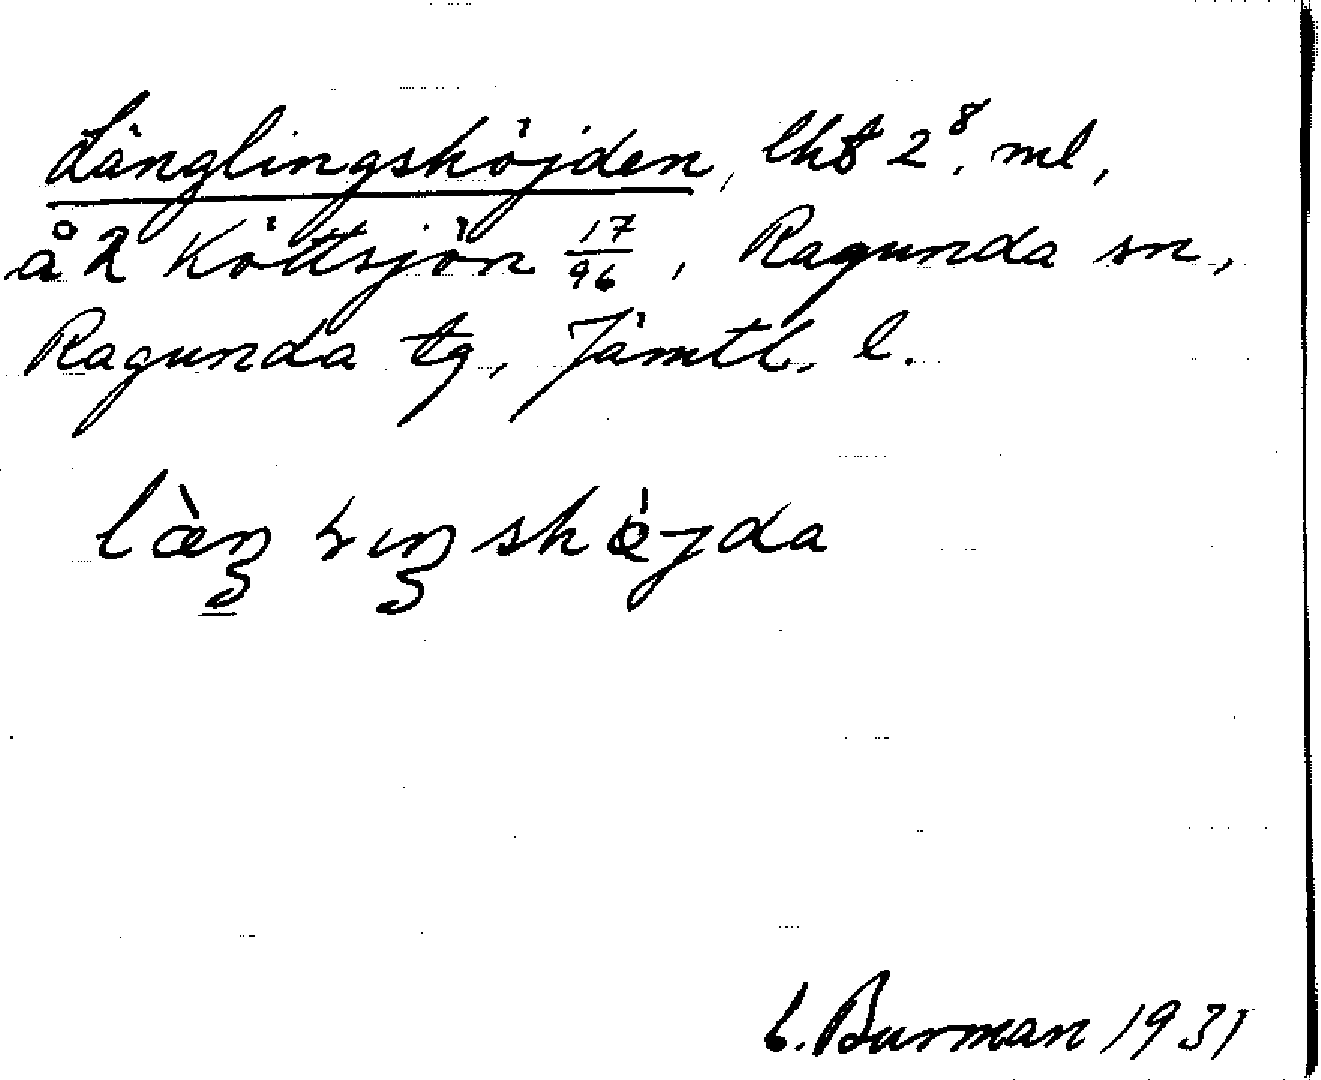 Länglingshöjden, lht 2⁸. ml,
å R Köttsjön 17/96, Ragunda sn,
Ragunda tg., Jämtl. l.
C. Burman 1931